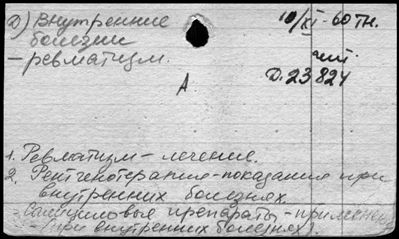 2) Внутренние
болезни
— ревматизм.
10/XI - 60 тн.
чит.
Д. 23 824
А
1. Ревматизм — лечение.
2. Рентгенотерапия - показания при
внутренних болезнях.
Салициловые препараты - примене
при внутренних болезнях.